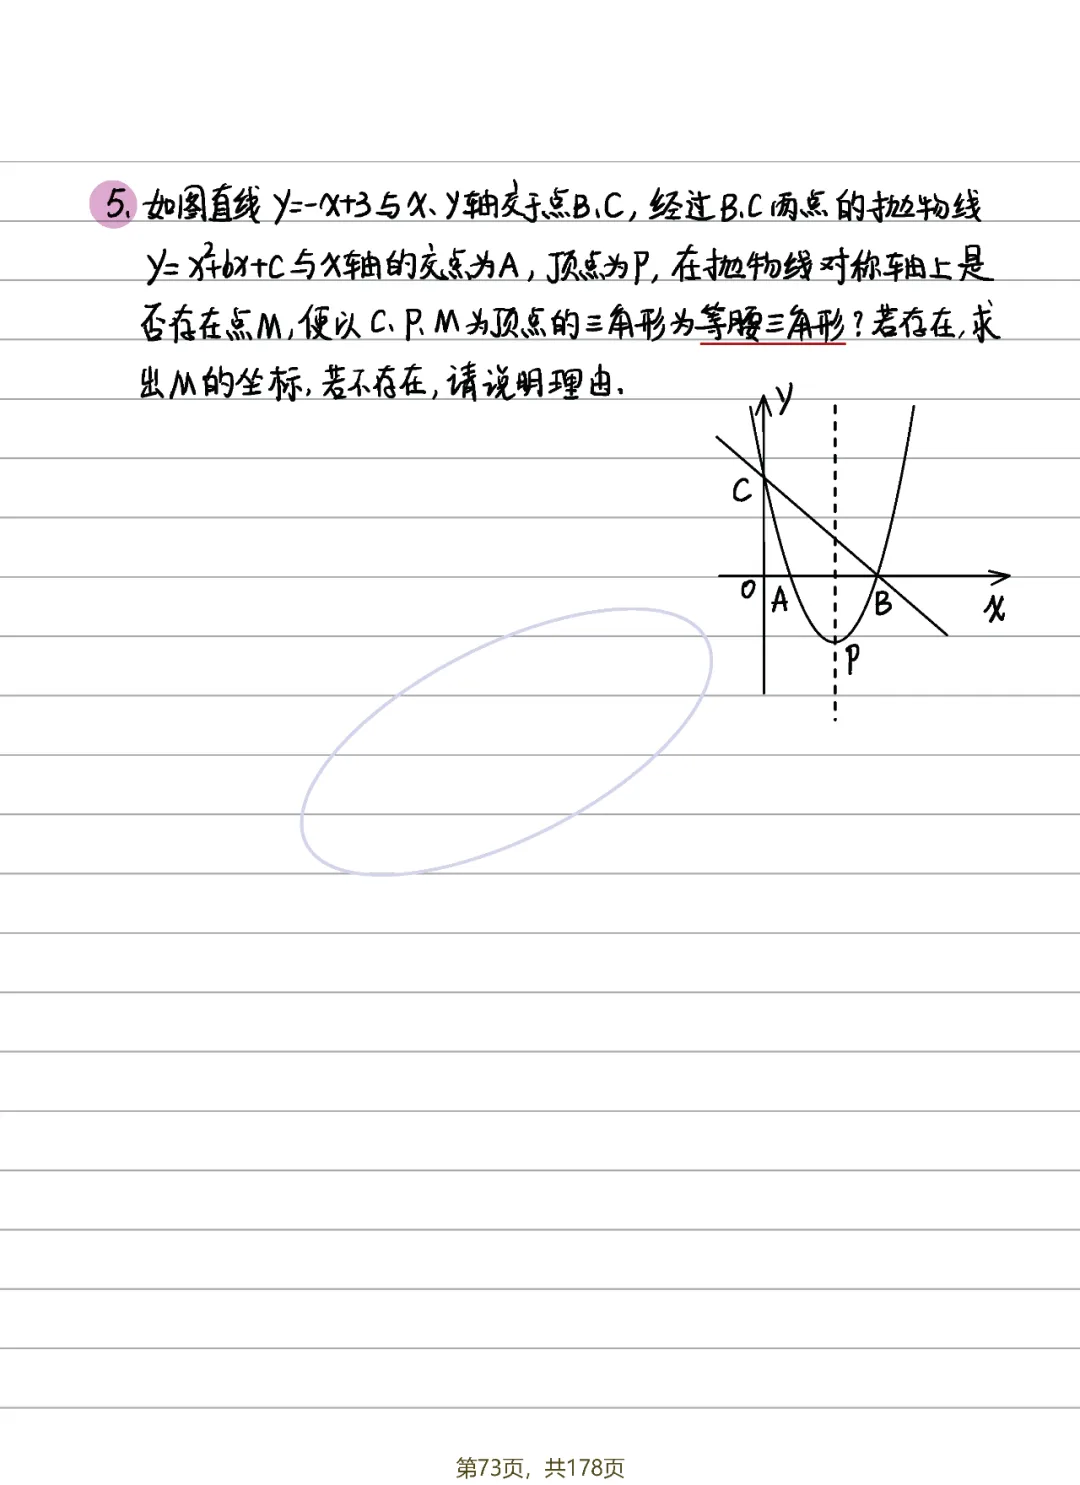 5. 如图直线 y=-x+3与x、y轴交于点B、C, 经过B.C两点的抛物线
y=x²+bx+c与x轴的交点为A, 顶点为P, 在抛物线对称轴上是
否存在点M, 使以C、P、M为顶点的三角形为等腰三角形? 若存在, 求
出M的坐标, 若不存在, 请说明理由.
y
C
O A B x
P
第73页, 共178页